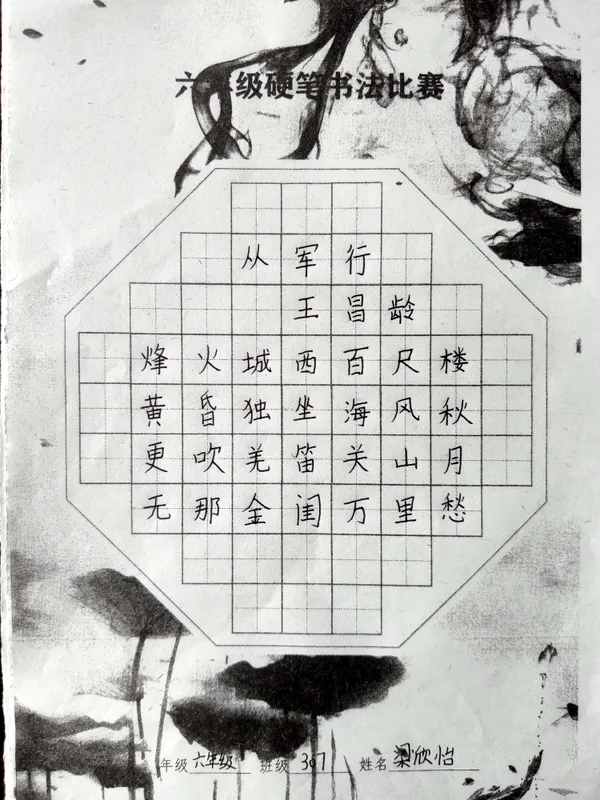 六年级硬笔书法比赛
从军行
王昌龄
烽火城西百尺楼
黄昏独坐海风秋
更吹羌笛关山月
无那金闺万里愁
年级 六年级 班级 307 姓名 梁欣怡